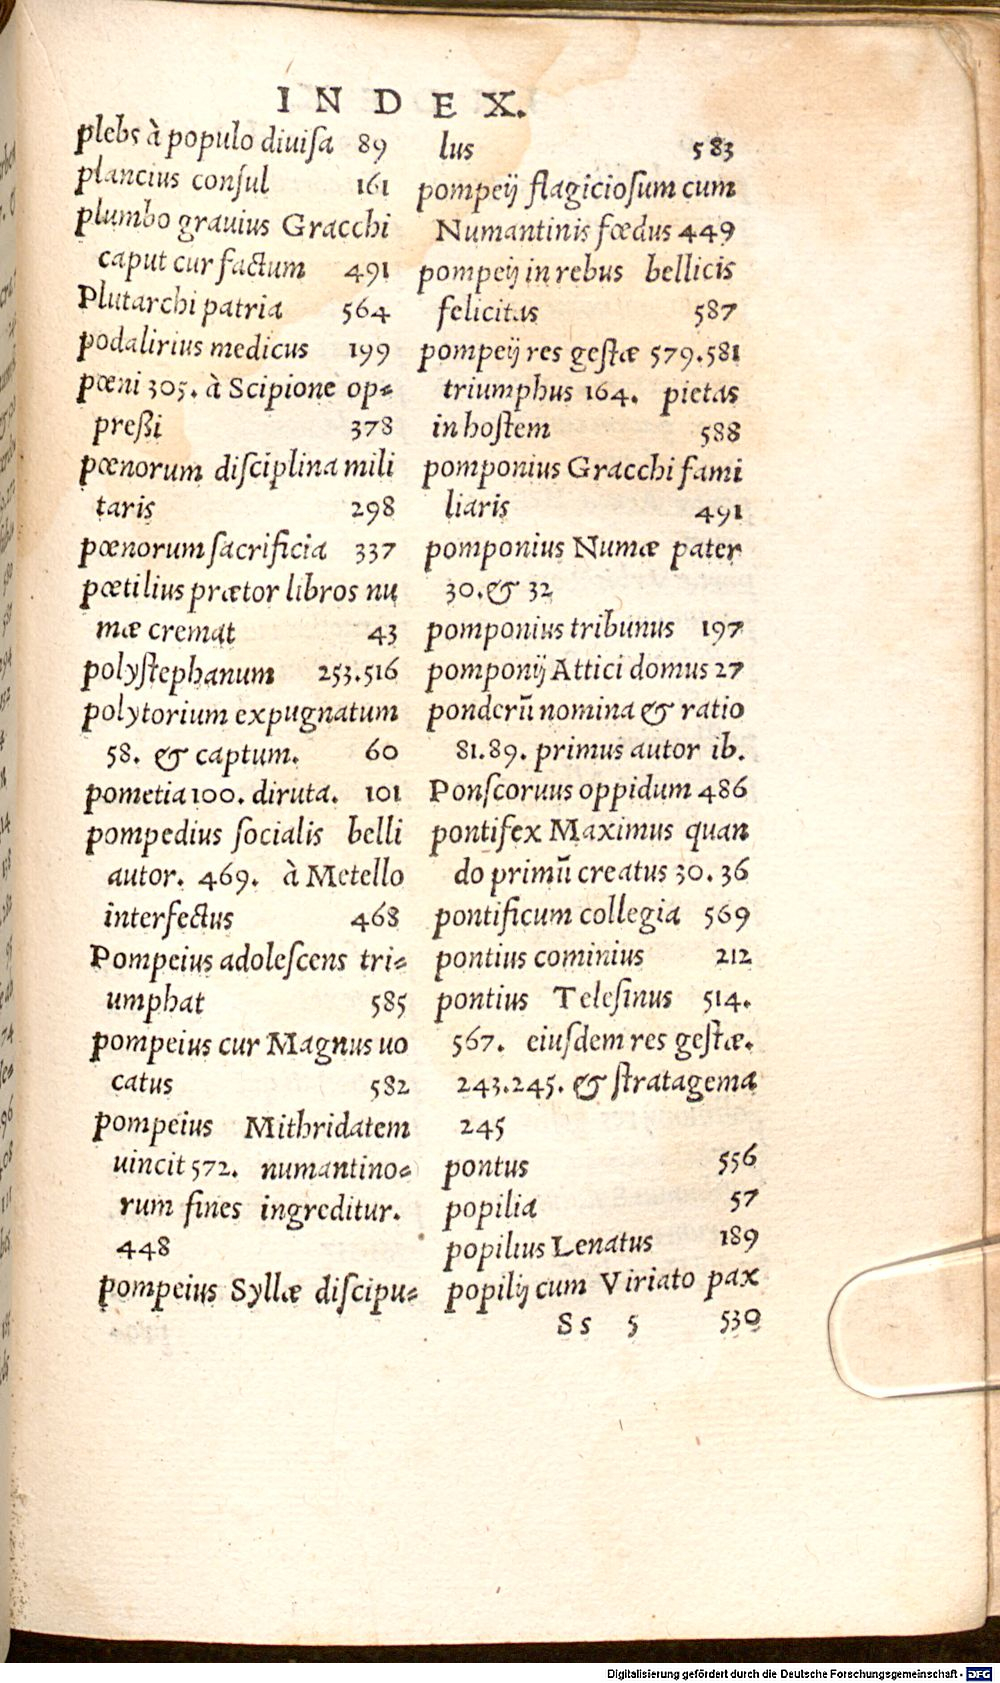 INDEX.
plebs à populo diuisa 89
plancius consul 161
plumbo grauius Gracchi
caput cur factum 491
Plutarchi patria 564
podalirius medicus 199
pœni 305. à Scipione op-
preßi 378
pœnorum disciplina mili
taris 298
pœnorum sacrificia 337
pœtilius prætor libros nu
mæ cremat 43
polystephanum 253.516
polytorium expugnatum
58. & captum. 60
pometia 100. diruta. 101
pompedius socialis belli
autor. 469. à Metello
interfectus 468
Pompeius adolescens tri-
umphat 585
pompeius cur Magnus uo
catus 582
pompeius Mithridatem
uincit 572. numantino-
rum fines ingreditur.
448
pompeius Syllæ discipu-
lus 583
pompeij flagiciosum cum
Numantinis fœdus 449
pompeij in rebus bellicis
felicitas 587
pompeij res gestæ 579.581
triumphus 164. pietas
in hostem 588
pomponius Gracchi fami
liaris 491
pomponius Numæ pater
30.& 32
pomponius tribunus 197
pomponij Attici domus 27
ponderū nomina & ratio
81.89. primus autor ib.
Ponscoruus oppidum 486
pontifex Maximus quan
do primū creatus 30.36
pontificum collegia 569
pontius cominius 212
pontius Telesinus 514.
567. eiusdem res gestæ.
243.245. & stratagema
245
pontus 556
popilia 57
popilius Lenatus 189
popilij cum Viriato pax
Ss 5 530
Digitalisierung gefördert durch die Deutsche Forschungsgemeinschaft - DFG